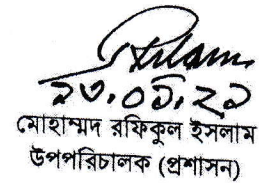 ২৩.০৯.২১
মোহাম্মদ রফিকুল ইসলাম
উপপরিচালক (প্রশাসন)